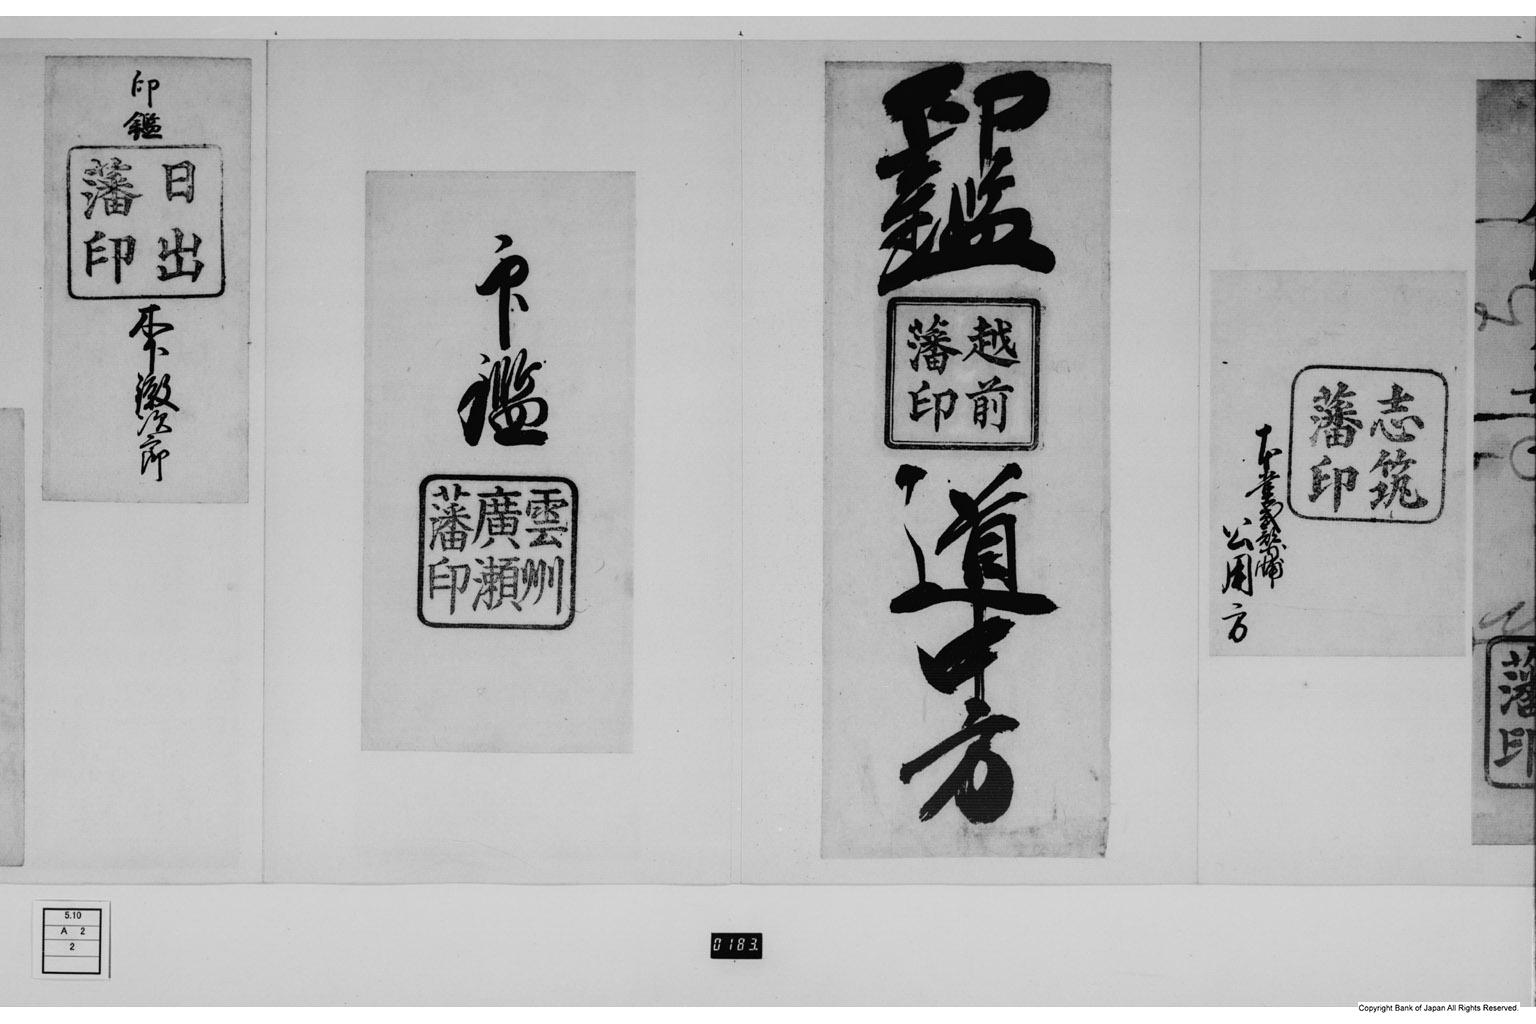 藩
印
志筑
藩印
本堂
公用方
印鑑
越前
藩印
道中方
印鑑
雲州
廣瀬
藩印
印鑑
日出
藩印
次郎
5.10
A 2
2
0183
Copyright Bank of Japan All Rights Reserved.